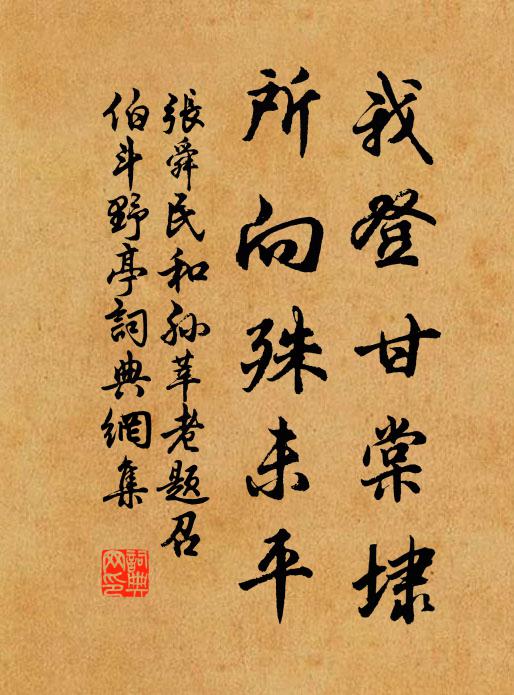 我登甘棠埭
所向殊未平
張舜民和孙莘老题召
伯斗野亭詞典網集
詞典网印